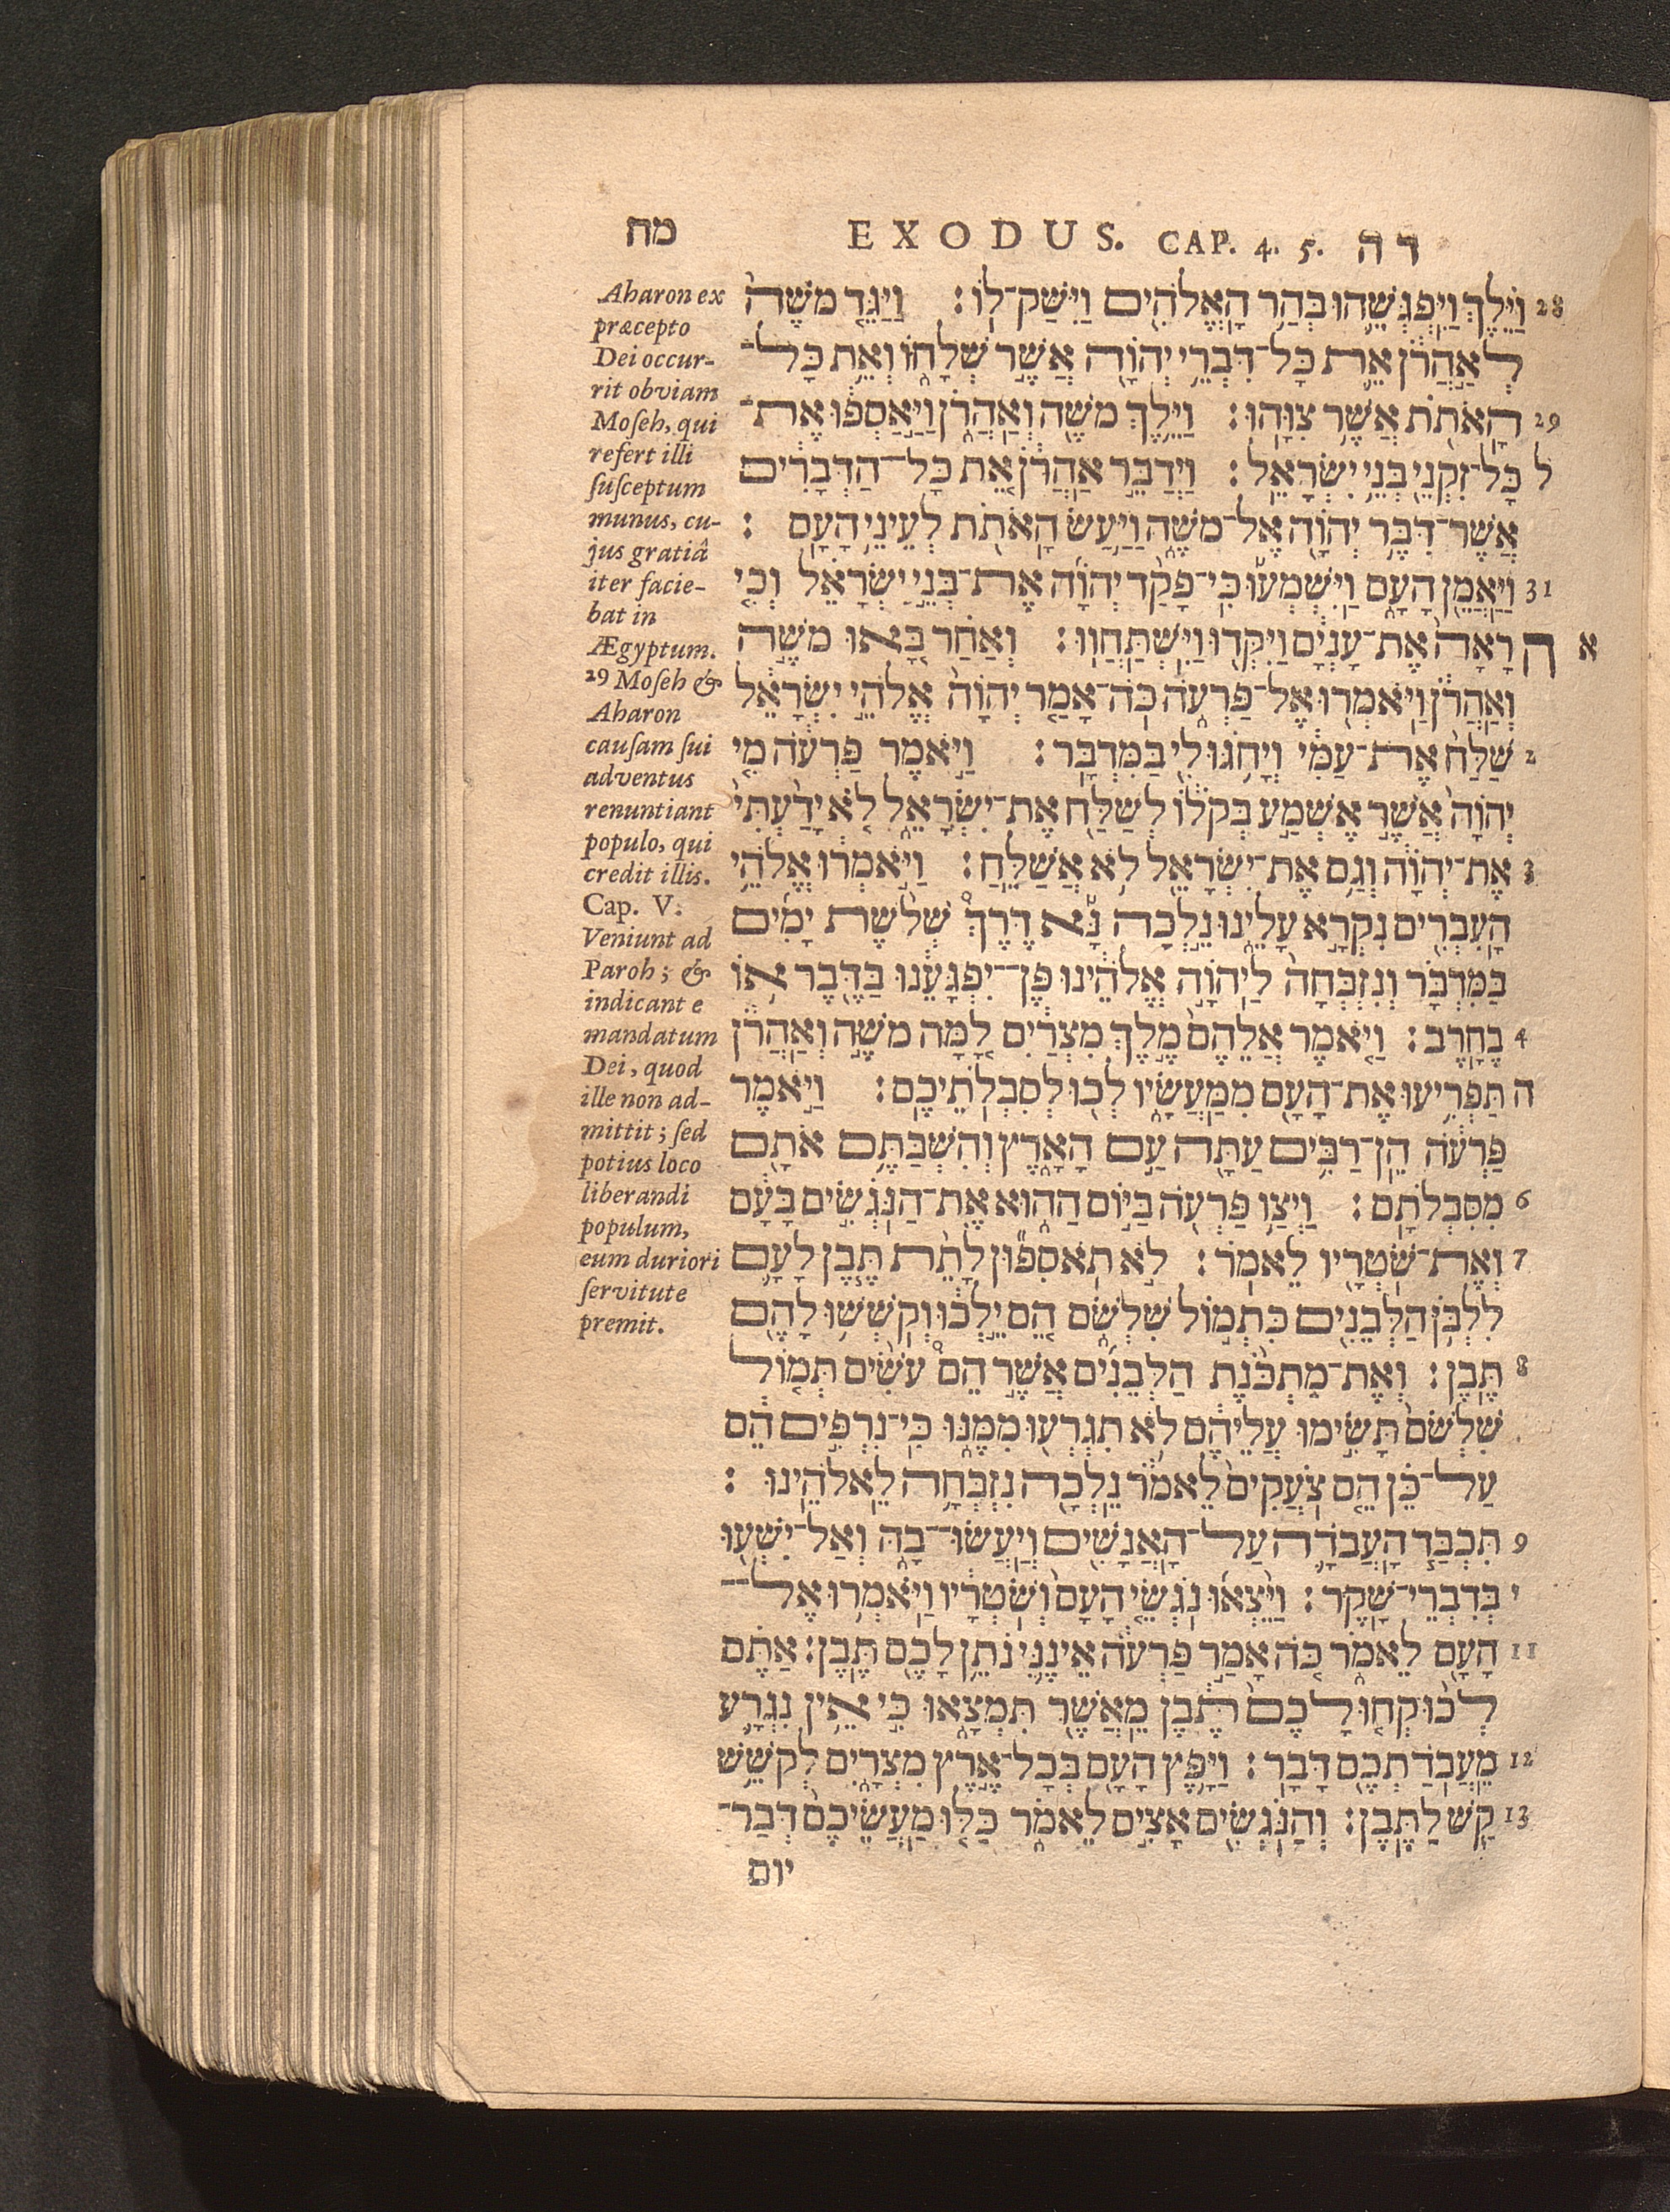 מח EXODUS. CAP. 4. 5. ד ה
Aharon ex
præcepto
Dei occur-
rit obviam
Moſeh, qui
refert illi
ſuſceptum
munus, cu-
jus gratiâ
iter facie-
bat in
Ægyptum.
29 Moſeh &
Aharon
cauſam ſui
adventus
renuntiant
populo, qui
credit illis.
Cap. V.
Veniunt ad
Paroh; &
indicant e
mandatum
Dei, quod
ille non ad-
mittit; ſed
potius loco
liberandi
populum,
eum duriori
ſervitute
premit.
28 וַיֵּ֗לֶךְ וַֽיִּפְגְּשֵׁ֛הוּ בְּהַ֥ר הָאֱלֹהִ֖ים וַיִּשַּׁק־לֽוֹ׃ וַיַּגֵּ֤ד מֹשֶׁה֙
לְאַֽהֲרֹ֔ן אֵ֛ת כָּל־דִּבְרֵ֥י יְהוָ֖ה אֲשֶׁ֣ר שְׁלָח֑וֹ וְאֵ֥ת כָּל־
29 הָאֹתֹ֖ת אֲשֶׁ֥ר צִוָּֽהוּ׃ וַיֵּ֥לֶךְ מֹשֶׁ֖ה וְאַהֲרֹ֑ן וַיַּ֣אַסְפ֔וּ אֶת־
ל כָּל־זִקְנֵ֖י בְּנֵ֥י יִשְׂרָאֵֽל׃ וַיְדַבֵּ֣ר אַהֲרֹ֔ן אֵ֚ת כָּל־הַדְּבָרִ֔ים
אֲשֶׁר־דִּבֶּ֥ר יְהוָ֖ה אֶל־מֹשֶׁ֑ה וַיַּ֥עַשׂ הָאֹתֹ֖ת לְעֵינֵ֥י הָעָֽם׃
31 וַֽיַּאֲמֵ֖ן הָעָ֑ם וַֽיִּשְׁמְע֡וּ כִּֽי־פָקַ֨ד יְהוָ֜ה אֶת־בְּנֵ֣י יִשְׂרָאֵ֗ל וְכִ֤י
א ה רָאָה֙ אֶת־עָנְיָ֔ם וַֽיִּקְּד֖וּ וַיִּֽשְׁתַּחֲוֽוּ׃ וְאַחַ֗ר בָּ֚אוּ מֹשֶׁ֣ה
וְאַהֲרֹ֔ן וַיֹּאמְר֖וּ אֶל־פַּרְעֹ֑ה כֹּֽה־אָמַ֤ר יְהוָה֙ אֱלֹהֵ֣י יִשְׂרָאֵ֔ל
2 שַׁלַּח֙ אֶת־עַמִּ֔י וְיָחֹ֥גּוּ לִ֖י בַּמִּדְבָּֽר׃ וַיֹּ֣אמֶר פַּרְעֹ֔ה מִ֤י
יְהוָה֙ אֲשֶׁ֣ר אֶשְׁמַ֣ע בְּקֹל֔וֹ לְשַׁלַּ֖ח אֶת־יִשְׂרָאֵ֑ל לֹ֤א יָדַ֙עְתִּי֙
3 אֶת־יְהוָ֔ה וְגַ֥ם אֶת־יִשְׂרָאֵ֖ל לֹ֥א אֲשַׁלֵּֽחַ׃ וַיֹּ֣אמְר֔וּ אֱלֹהֵ֥י
הָעִבְרִ֖ים נִקְרָ֣א עָלֵ֑ינוּ נֵ֣לֲכָה נָּ֡א דֶּרֶךְ֩ שְׁלֹ֨שֶׁת יָמִ֜ים
בַּמִּדְבָּ֗ר וְנִזְבְּחָה֙ לַֽיהוָ֣ה אֱלֹהֵ֔ינוּ פֶּ֨ן־יִפְגָּעֵ֔נוּ בַּדֶּ֖בֶר א֥וֹ
4 בֶחָֽרֶב׃ וַיֹּ֤אמֶר אֲלֵהֶם֙ מֶ֣לֶךְ מִצְרַ֔יִם לָ֚מָּה מֹשֶׁ֣ה וְאַהֲרֹ֔ן
ה תַּפְרִ֥יעוּ אֶת־הָעָ֖ם מִמַּֽעֲשָׂ֑יו לְכ֖וּ לְסִבְלֹתֵיכֶֽם׃ וַיֹּ֣אמֶר
פַּרְעֹ֔ה הֵן־רַבִּ֥ים עַתָּ֖ה עַ֣ם הָאָ֑רֶץ וְהִשְׁבַּתֶּ֥ם אֹתָ֖ם
6 מִסִּבְלֹתָֽם׃ וַיְצַ֥ו פַּרְעֹ֖ה בַּיּ֣וֹם הַה֑וּא אֶת־הַנֹּגְשִׂ֣ים בָּעָ֔ם
7 וְאֶת־שֹׁטְרָ֖יו לֵאמֹֽר׃ לֹ֣א תֹֽאסִפ֞וּן לָתֵ֨ת תֶּ֧בֶן לָעָ֛ם
לִלְבֹּ֥ן הַלְּבֵנִ֖ים כִּתְמ֣וֹל שִׁלְשֹׁ֑ם הֵ֚ם יֵֽלְכ֔וּ וְקֹשְׁשׁ֥וּ לָהֶ֖ם
8 תֶּֽבֶן׃ וְאֶת־מַתְכֹּ֨נֶת הַלְּבֵנִ֜ים אֲשֶׁ֣ר הֵם֩ עֹשִׂ֨ים תְּמ֤וֹל
שִׁלְשֹׁם֙ תָּשִׂ֣ימוּ עֲלֵיהֶ֔ם לֹ֥א תִגְרְע֖וּ מִמֶּ֑נּוּ כִּֽי־נִרְפִּ֣ים הֵ֔ם
עַל־כֵּ֗ן הֵ֤ם צֹֽעֲקִים֙ לֵאמֹ֔ר נֵלְכָ֖ה נִזְבְּחָ֥ה לֵאלֹהֵֽינוּ׃
9 תִּכְבַּ֧ד הָעֲבֹדָ֛ה עַל־הָאֲנָשִׁ֖ים וְיַעֲשׂוּ־בָ֑הּ וְאַל־יִשְׁע֖וּ
י בְּדִבְרֵי־שָֽׁקֶר׃ וַיֵּ֨צְא֜וּ נֹגְשֵׂ֤י הָעָם֙ וְשֹׁ֣טְרָ֔יו וַיֹּאמְר֥וּ אֶל־
11 הָעָ֖ם לֵאמֹ֑ר כֹּ֚ה אָמַ֣ר פַּרְעֹ֔ה אֵינֶ֛נִּי נֹתֵ֥ן לָכֶ֖ם תֶּֽבֶן׃ אַתֶּ֗ם
לְכ֨וּ קְח֤וּ לָכֶם֙ תֶּ֔בֶן מֵאֲשֶׁ֖ר תִּמְצָ֑אוּ כִּ֣י אֵ֥ין נִגְרָ֛ע
12 מֵעֲבֹדַתְכֶ֖ם דָּבָֽר׃ וַיָּ֥פֶץ הָעָ֖ם בְּכָל־אֶ֣רֶץ מִצְרָ֑יִם לְקֹשֵׁ֥שׁ
13 קַ֖שׁ לַתֶּֽבֶן׃ וְהַנֹּגְשִׂ֖ים אָצִ֣ים לֵאמֹ֑ר כַּלּ֤וּ מַעֲשֵׂיכֶם֙ דְּבַר־
יום